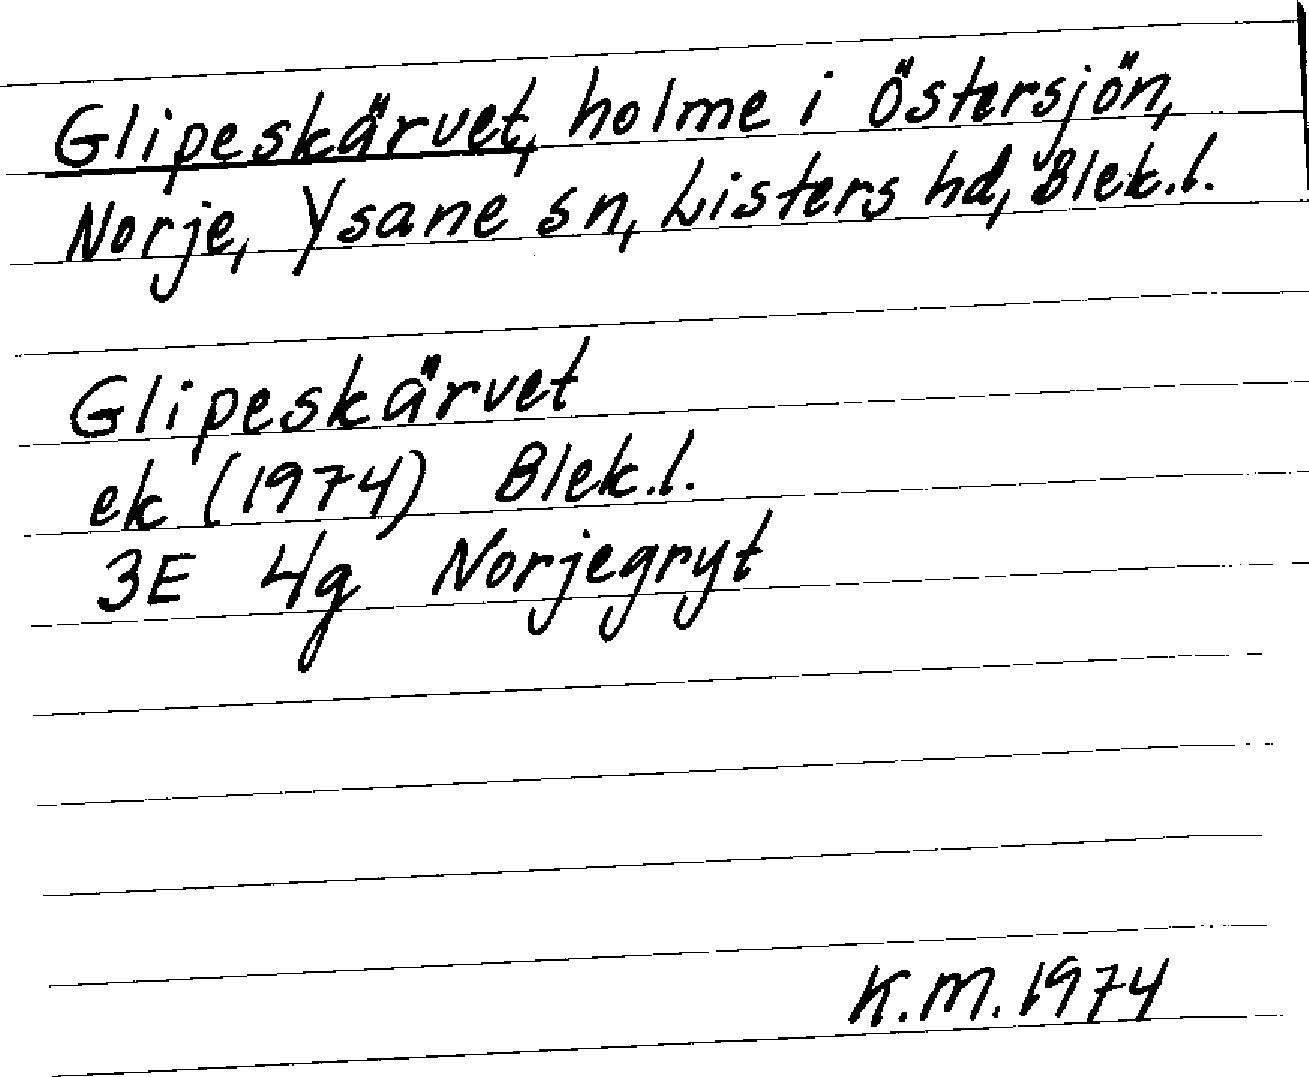 Glipeskärvet, holme i Östersjön,
Norje, Ysane sn, Listers hd, Blek.l.
Glipeskärvet
ek (1974) Blek.l.
3E 4g Norjegryt
K.M. 1974